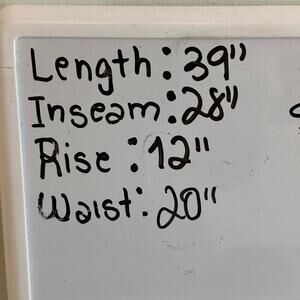 Length: 39"
Inseam: 28"
Rise: 12"
Waist: 20"